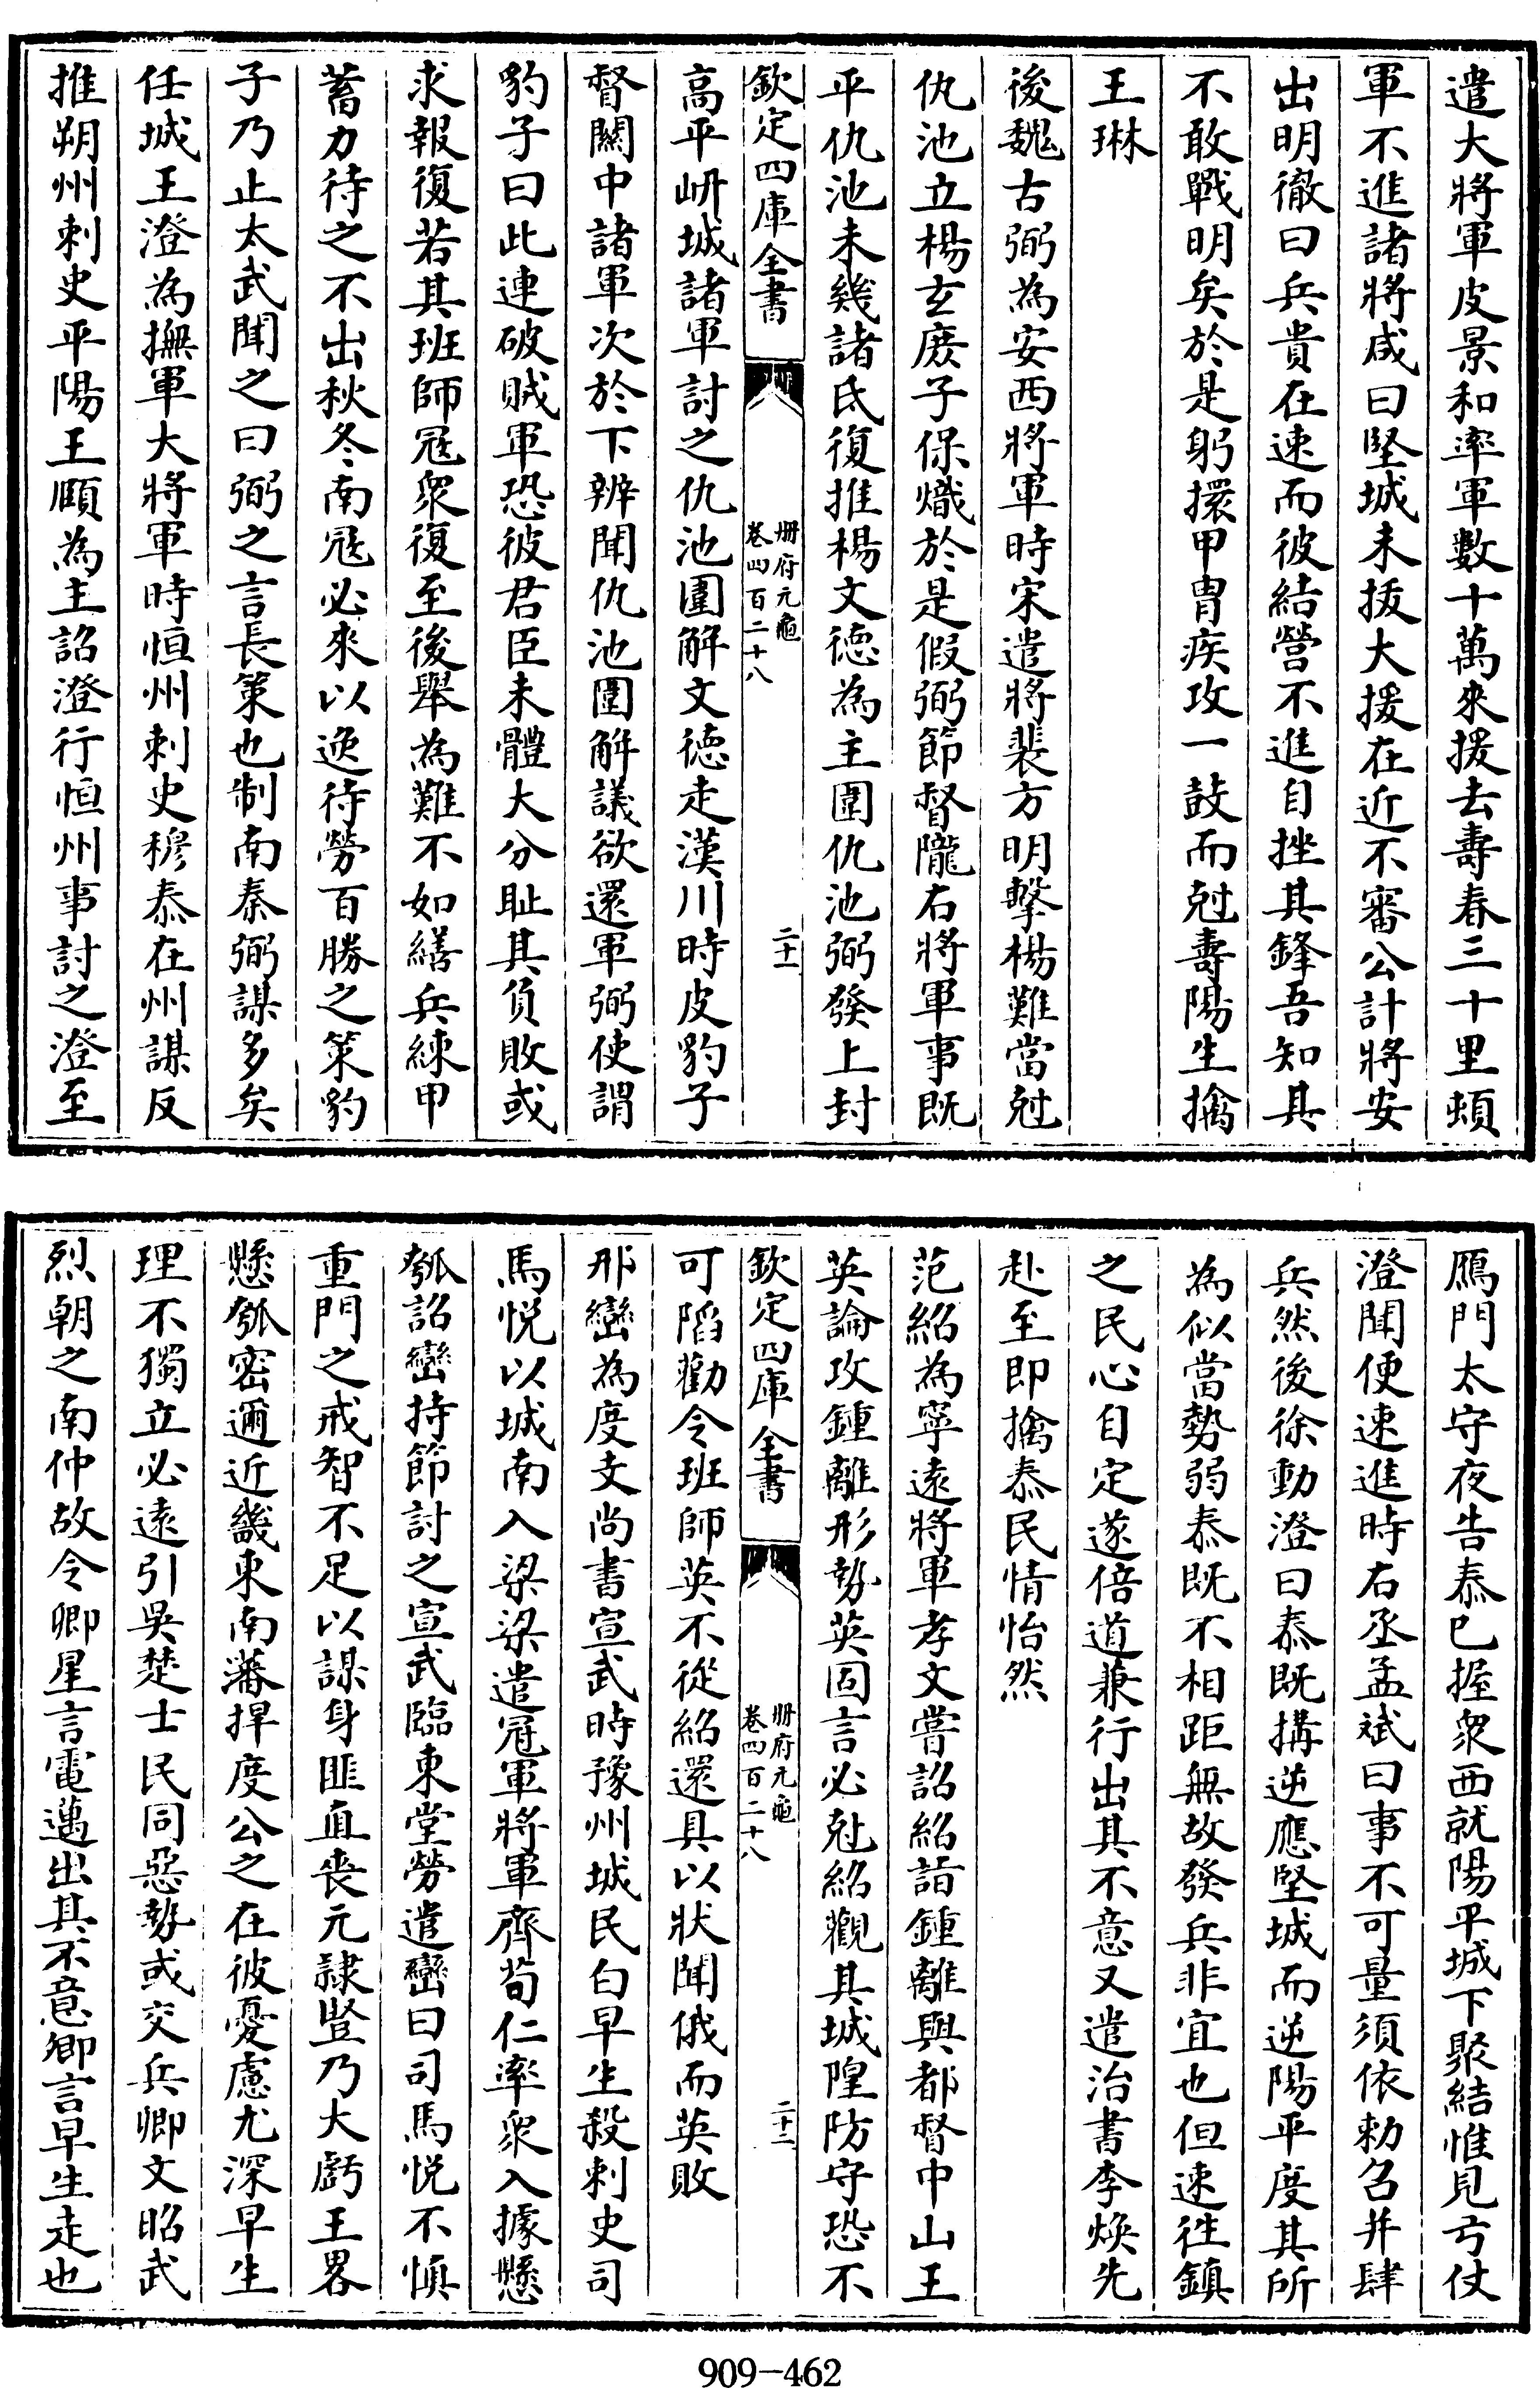 遣大將軍皮景和率軍數十萬來援去壽春三十里頓
軍不進諸將咸曰堅城未拔大援在近不審公計將安
出明徹曰兵貴在速而彼結營不進自挫其鋒吾知其
不敢戰明矣於是躬擐甲胄疾攻一鼓而尅壽陽生擒
王琳
後魏古弼為安西將軍時宋遣將裴方明擊楊難當尅
仇池立楊玄庻子保熾於是假弼節督隴右將軍事既
平仇池未幾諸氐復推楊文德為主圍仇池弼發上封
欽定四庫全書
冊府元龜
卷四百二十八
二十一
高平岍城諸軍討之仇池圍解文德走漢川時皮豹子
督關中諸軍次於下辨聞仇池圍解議欲還軍弼使謂
豹子曰此連破賊軍恐彼君臣未體大分耻其負敗或
求報復若其班師冦衆復至後舉為難不如繕兵練甲
蓄力待之不出秋冬南冦必來以逸待勞百勝之策豹
子乃止太武聞之曰弼之言長策也制南秦弼謀多矣
任城王澄為撫軍大將軍時恒州刺史穆泰在州謀反
推朔州刺史平陽王頤為主詔澄行恒州事討之澄至
鴈門太守夜告泰已握衆西就陽平城下聚結惟見弓仗
澄聞便速進時右丞孟斌曰事不可量須依勅召并肆
兵然後徐動澄曰泰既搆逆應堅城而逆陽平度其所
為似當勢弱泰既不相距無故發兵非宜也但速往鎮
之民心自定遂倍道兼行出其不意又遣治書李煥先
赴至即擒泰民情怡然
范紹為寧遠將軍孝文嘗詔紹詣鍾離與都督中山王
英論攻鍾離形勢英固言必尅紹觀其城隍防守恐不
欽定四庫全書
冊府元龜
卷四百二十八
二十二
可䧟勸令班師英不從紹還具以狀聞俄而英敗
邢巒為度支尚書宣武時豫州城民白早生殺刺史司
馬悦以城南入梁梁遣冠軍將軍齊茍仁率衆入據懸
瓠詔巒持節討之宣武臨東堂勞遣巒曰司馬悦不慎
重門之戒智不足以謀身匪直喪元隷豎乃大虧王畧
懸瓠密邇近畿東南藩捍度公之在彼憂慮尤深早生
理不獨立必遠引吳楚士民同惡勢或交兵卿文昭武
烈朝之南仲故令卿星言電邁出其不意卿言早生走也
909-462